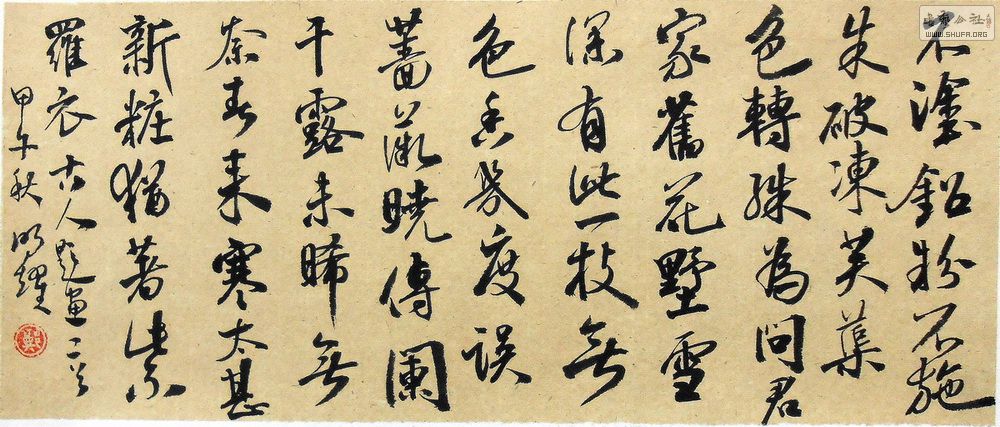 不塗鉛粉不施
朱破凍芙蕖
色轉殊為問君
家舊花墅雪
深有此一枝無
色香幾度誤
薔薇曉傅闌
干露未晞無
奈春來寒太甚
新粧猶著紫
羅衣 古人題畫二首
甲午秋 明耀
书法公社
WWW.SHUFA.ORG